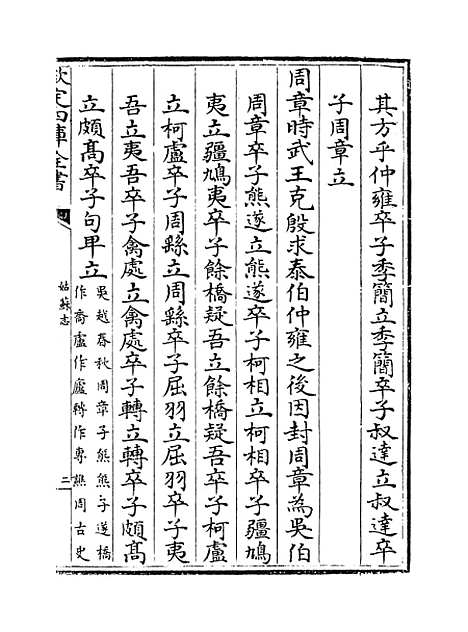 其方乎仲雍卒子季簡立季簡卒子叔達立叔達卒
子周章立
周章時武王克殷求泰伯仲雍之後因封周章為吳伯
周章卒子熊遂立熊遂卒子柯相立柯相卒子彊鳩
夷立彊鳩夷卒子餘橋疑吾立餘橋疑吾卒子柯盧
立柯盧卒子周繇立周繇卒子屈羽立屈羽卒子夷
吾立夷吾卒子禽處立禽處卒子轉立轉卒子頗髙
立頗髙卒子句卑立
吳越春秋周章子熊熊子遂橋
作喬盧作廬轉作專無周古史
欽定四庫全書
姑蘇志
二